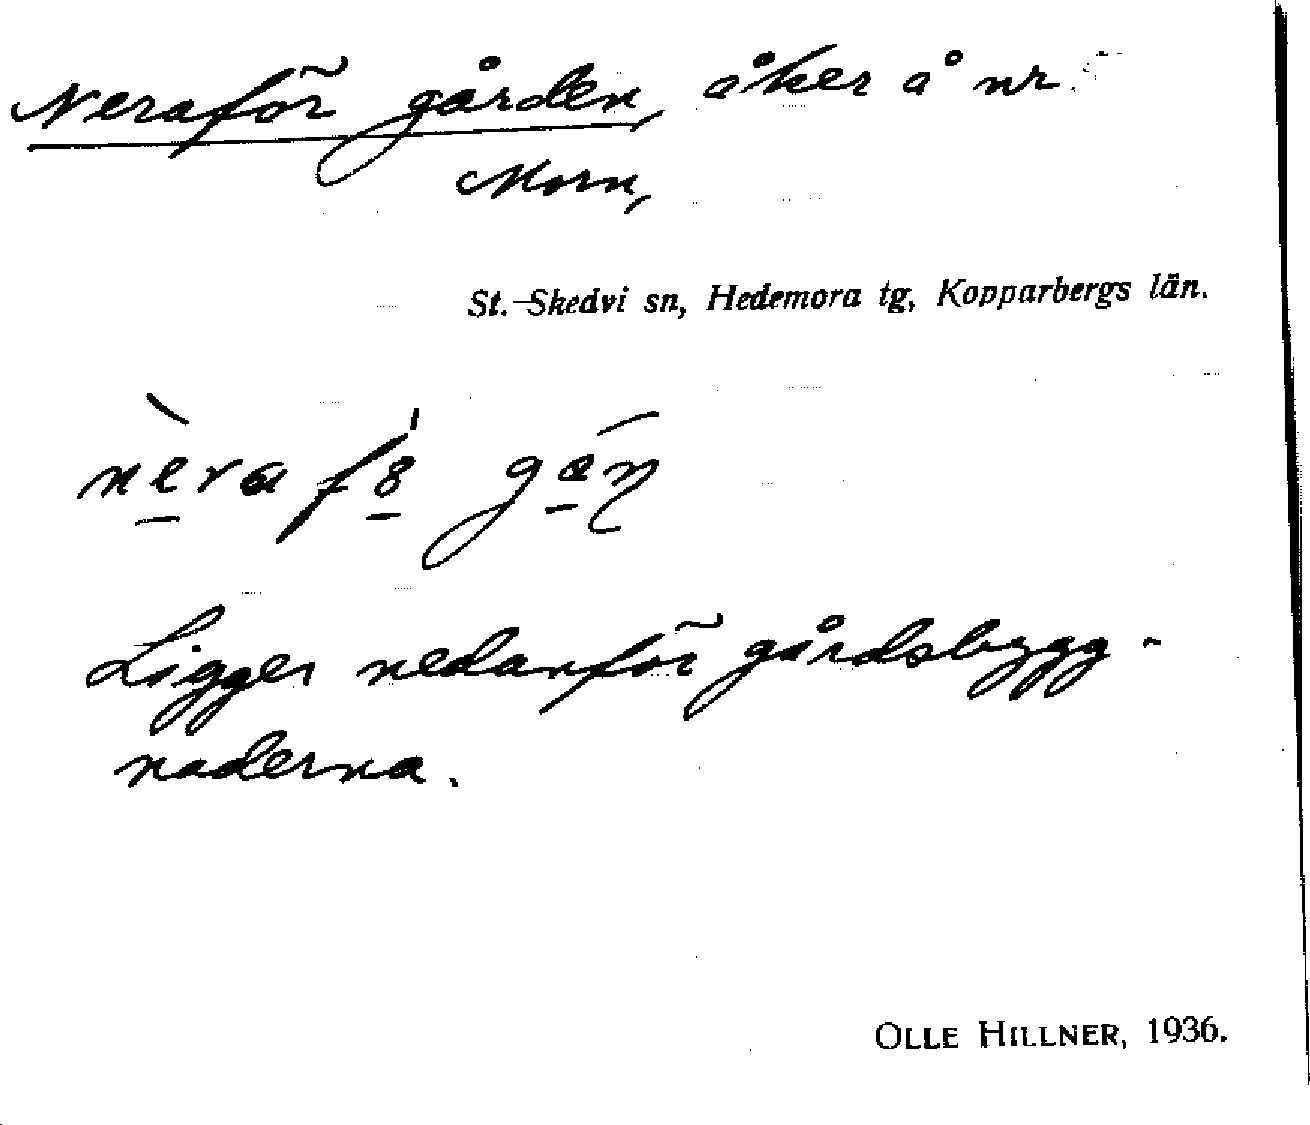 Neraför gården, åker å nr
Morn,
St. Skedvi sn, Hedemora tg, Kopparbergs län.
Ligger nedanför gårdsbygg-
naderna.
OLLE HILLNER, 1936.